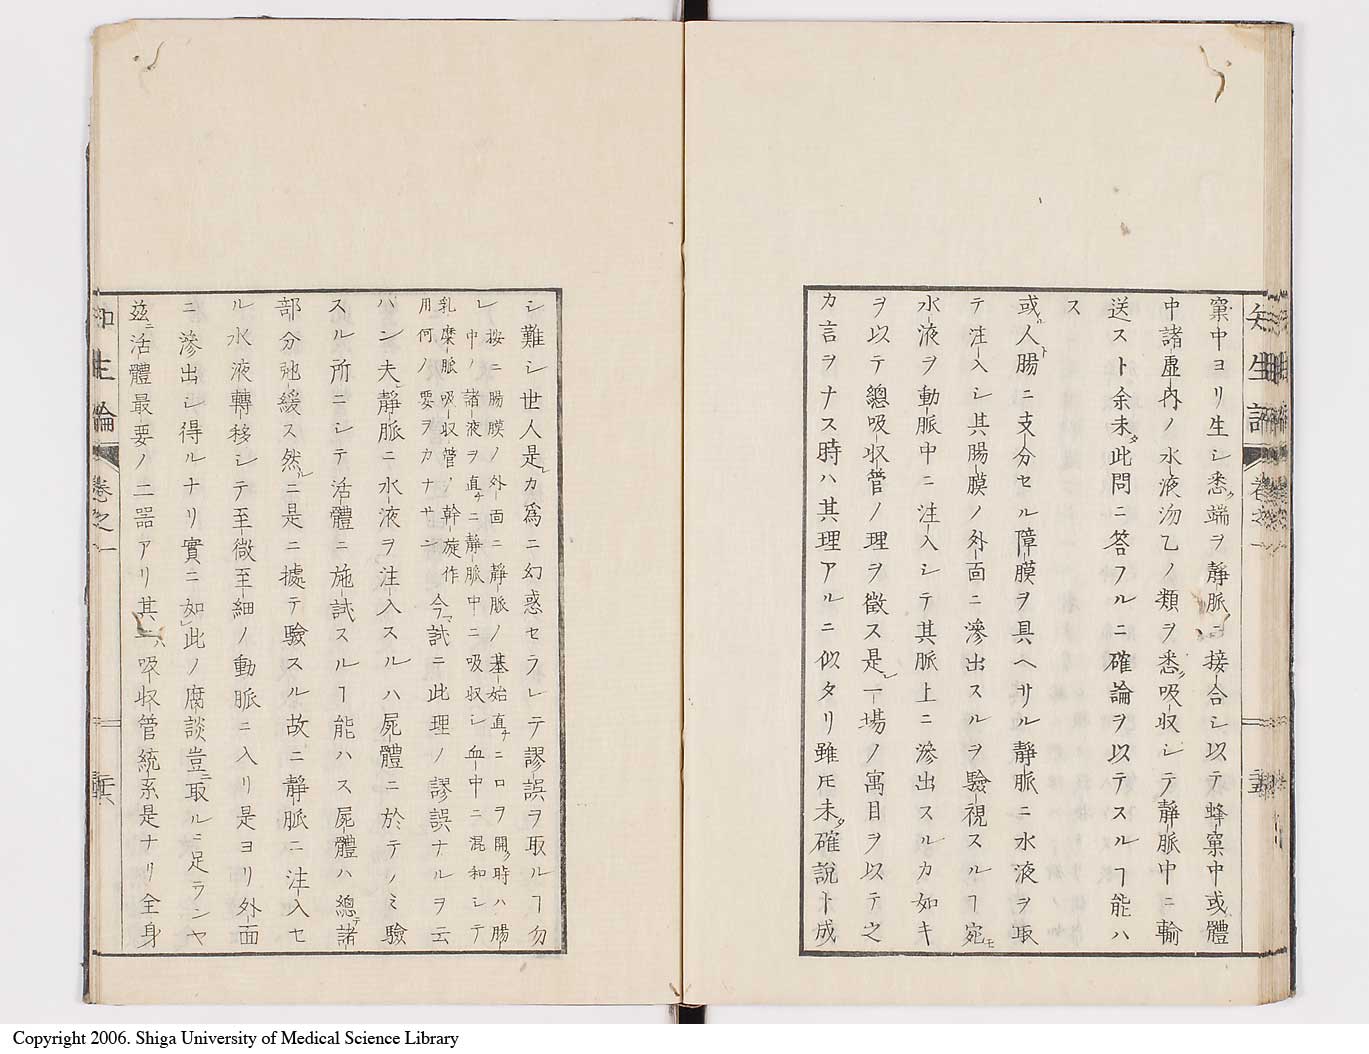 窠中ヨリ生シ悉ク端ヲ靜脈ニ接合シ以テ蜂窠中或體
中諸虛内ノ水液沕乙ノ類ヲ悉ク吸収シテ靜脈中ニ輸
送スト余未タ此問ニ答フルニ確論ヲ以テスルヿ能ハ
ス
或ハ人腸ニ支分セル障膜ヲ具ヘサル靜脈ニ水液ヲ取
テ注入シ其腸膜ノ外面ニ滲出スルヲ驗視スルヿ宛モ
水液ヲ動脈中ニ注入シテ其脈上ニ滲出スルカ如キ
ヲ以テ總吸収管ノ理ヲ徵ス是レ一場ノ寓目ヲ以テ之
カ言ヲナス時ハ其理アルニ似タリ雖𪜈未タ確說ト成
シ難シ世人是レカ爲ニ幻惑セラレテ謬誤ヲ取ルヿ勿
レ
按ニ腸膜ノ外面ニ靜脈ノ基始直チニ口ヲ開ク時ハ腸
中ノ諸液ヲ直チニ靜脈中ニ吸収シ血中ニ混和シテ
乳糜脈吸収管ノ幹旋作
用何ノ要ヲカナサン
今マ試ニ此理ノ謬誤ナルヲ云
ハン夫レ靜脈ニ水液ヲ注入スルハ屍體ニ於テノミ驗
スル所ニシテ活體ニ施試スルヿ能ハス屍體ハ總テ諸
部分弛緩ス然ルニ是ニ據テ驗スル故ニ靜脈ニ注入セ
ル水液轉移シテ至微至細ノ動脈ニ入リ是ヨリ外面
ニ滲出シ得ルナリ實ニ如此ノ腐談豈ニ取ルニ足ランヤ
茲ニ活體最要ノ二噐アリ其一ハ吸収管統系是ナリ全身
知生論
卷之一
Copyright 2006. Shiga University of Medical Science Library